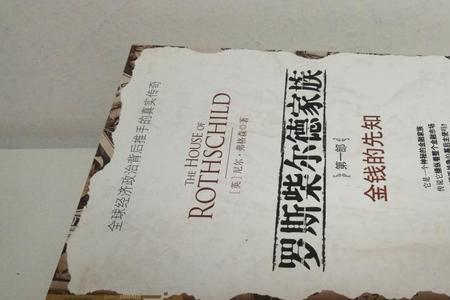 全球经济政治背后推手的真实传奇
THE HOUSE OF
ROTHSCHILD
[英]尼尔·弗格森◎著
罗斯柴尔德家族
第一部
金钱的先知
它是一个神秘的金融家族
传说它操纵着整个金融市场